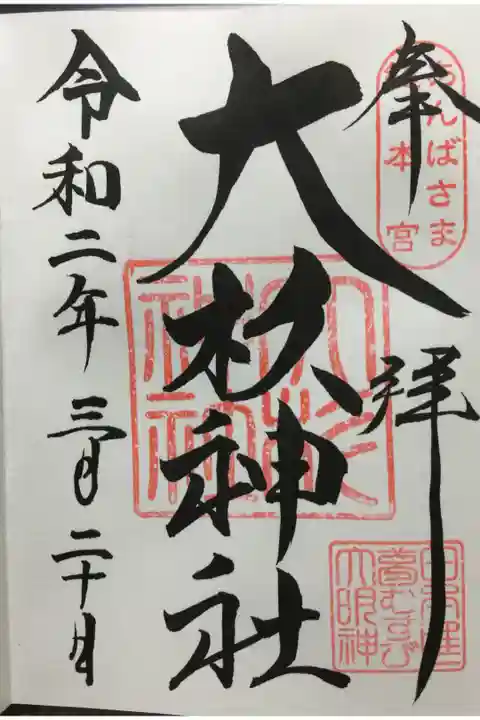 奉拝
あんばさま
総本宮
大杉神社
大杉神社
日本唯一
夢むすび
大明神
令和二年三月二十日